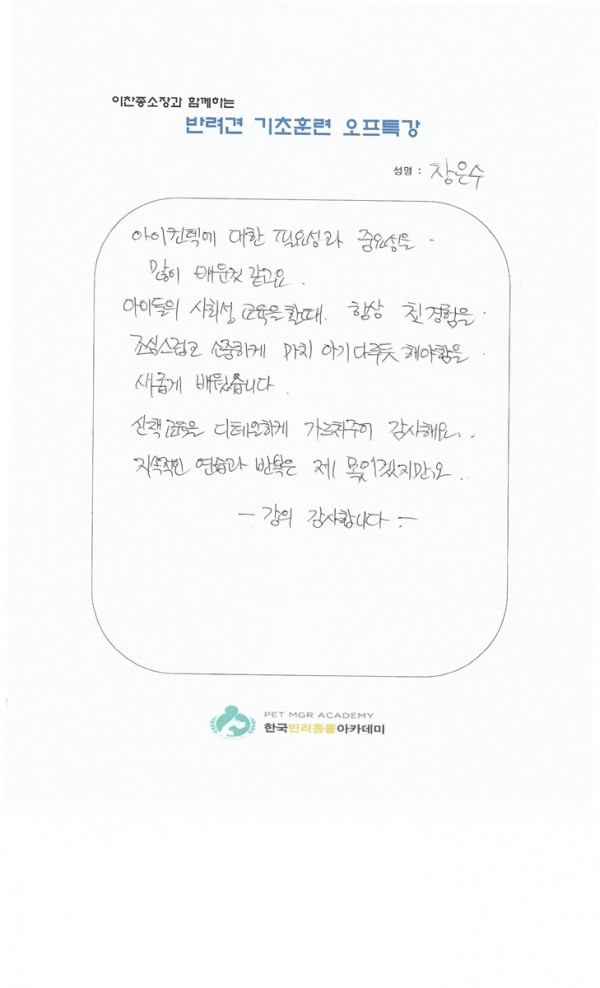 이찬종소장과 함께하는
반려견 기초훈련 오프특강
성명 : 장은수
아이컨텍에 대한 필요성과 중요성을
많이 배운것 같고요.
아이들의 사회성 교육을 할때. 항상 첫 경험을
조심스럽고 신중하게 마치 아기 다루듯 해야함을
새롭게 배웠습니다
산책교육은 디테일하게 가르쳐주어 감사해요..
지속적인 연습과 반복은 제 몫이겠지만요.
- 강의 감사합니다 -
PET MGR ACADEMY
한국반려동물아카데미